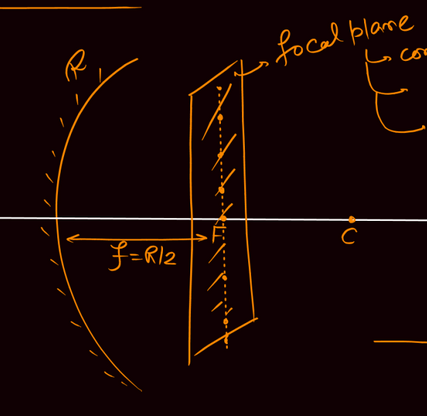 focal plane
R
F
C
f = R/2